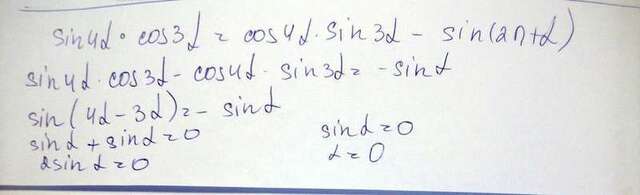 sin4α · cos3α = cos4α · sin3α - sin(2π+α)
sin4α · cos3α - cos4α · sin3α = -sinα
sin(4α - 3α) = - sinα
sinα + sinα = 0
2sinα = 0
sinα = 0
α = 0